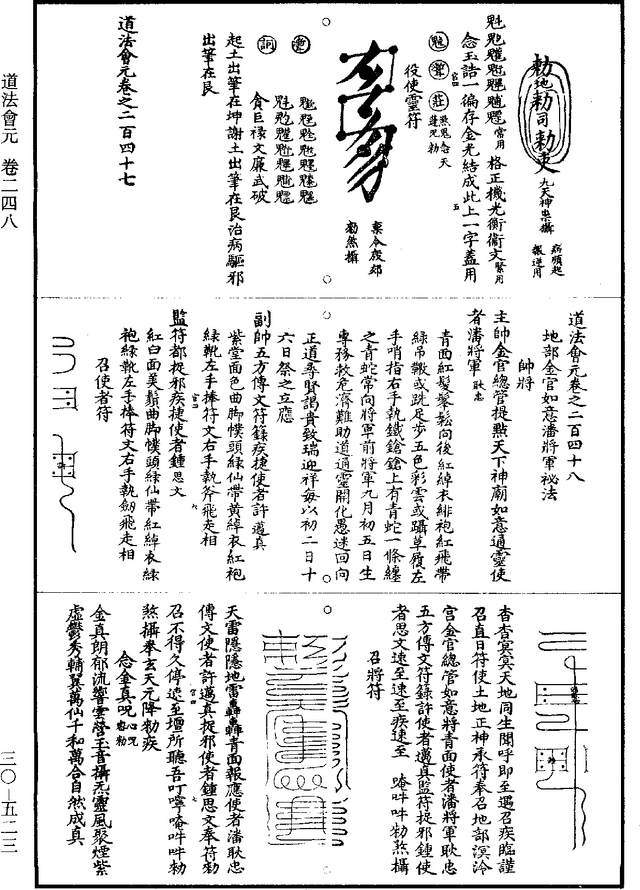 道法會元 卷二四八
三〇—五二三
勅地勅司勅吏
九天神煞攝
病頭起
報送用
常用 格正機光衝衞文 緊用
念玉誥一徧存金光結成此上一字蓋用
煞鬼念天
蓬咒勅
役使靈符
稟令收邪
勅煞攝
貪巨祿文廉武破
起土出筆在坤謝土出筆在艮治病驅邪
出筆在艮
道法會元卷之二百四十七
道法會元卷之二百四十八
地部金官如意潘將軍祕法
帥將
主帥金官總管提點天下神廟如意通靈使
者潘將軍耿忠
青面紅髮鬅鬆向後紅綽衣緋袍紅飛帶
綠吊䩺或跣足步五色彩雲或躡草履左
手哨指右手執鐵鎗鎗上有青蛇一條纏
之青蛇常向將軍前將軍九月初五日生
專務救危濟難助道通靈開化愚迷回向
正道尋賢謁貴致瑞迎祥每以初二日十
六日祭之立應
副帥五方傳文符籙疾捷使者許邁真
紫堂面色曲脚幞頭綠仙帶黃綽衣紅袍
綠靴左手捧符文右手執斧飛走相
監符都捉邪疾捷使者鍾思文
紅白面美髯曲脚幞頭綠仙帶紅綽衣綠
袍綠靴左手捧符文右手執劒飛走相
召使者符
杳杳冥冥天地同生聞呼即至遇召疾臨謹
召直日符使土地正神承符奉召地部溟泠
宮金官總管如意將青面使者潘將軍耿忠
五方傳文符籙許使者邁真監符捉邪鍾使
者思文速至速至疾速至 唵吽吽勅煞攝
召將符
天雷隱隱地雷轟轟青面報應使者潘耿忠
傳文使者許邁真捉邪使者鍾思文奉符勅
召不得久停速至壇所聽吾叮嚀唵吽吽勅
煞攝奉玄天元降勅疾
念金真咒 心咒密勅
金真朗郁流響雲營玉音攝炁靈風聚煙紫
虛鬱秀輔翼萬仙千和萬合自然成真